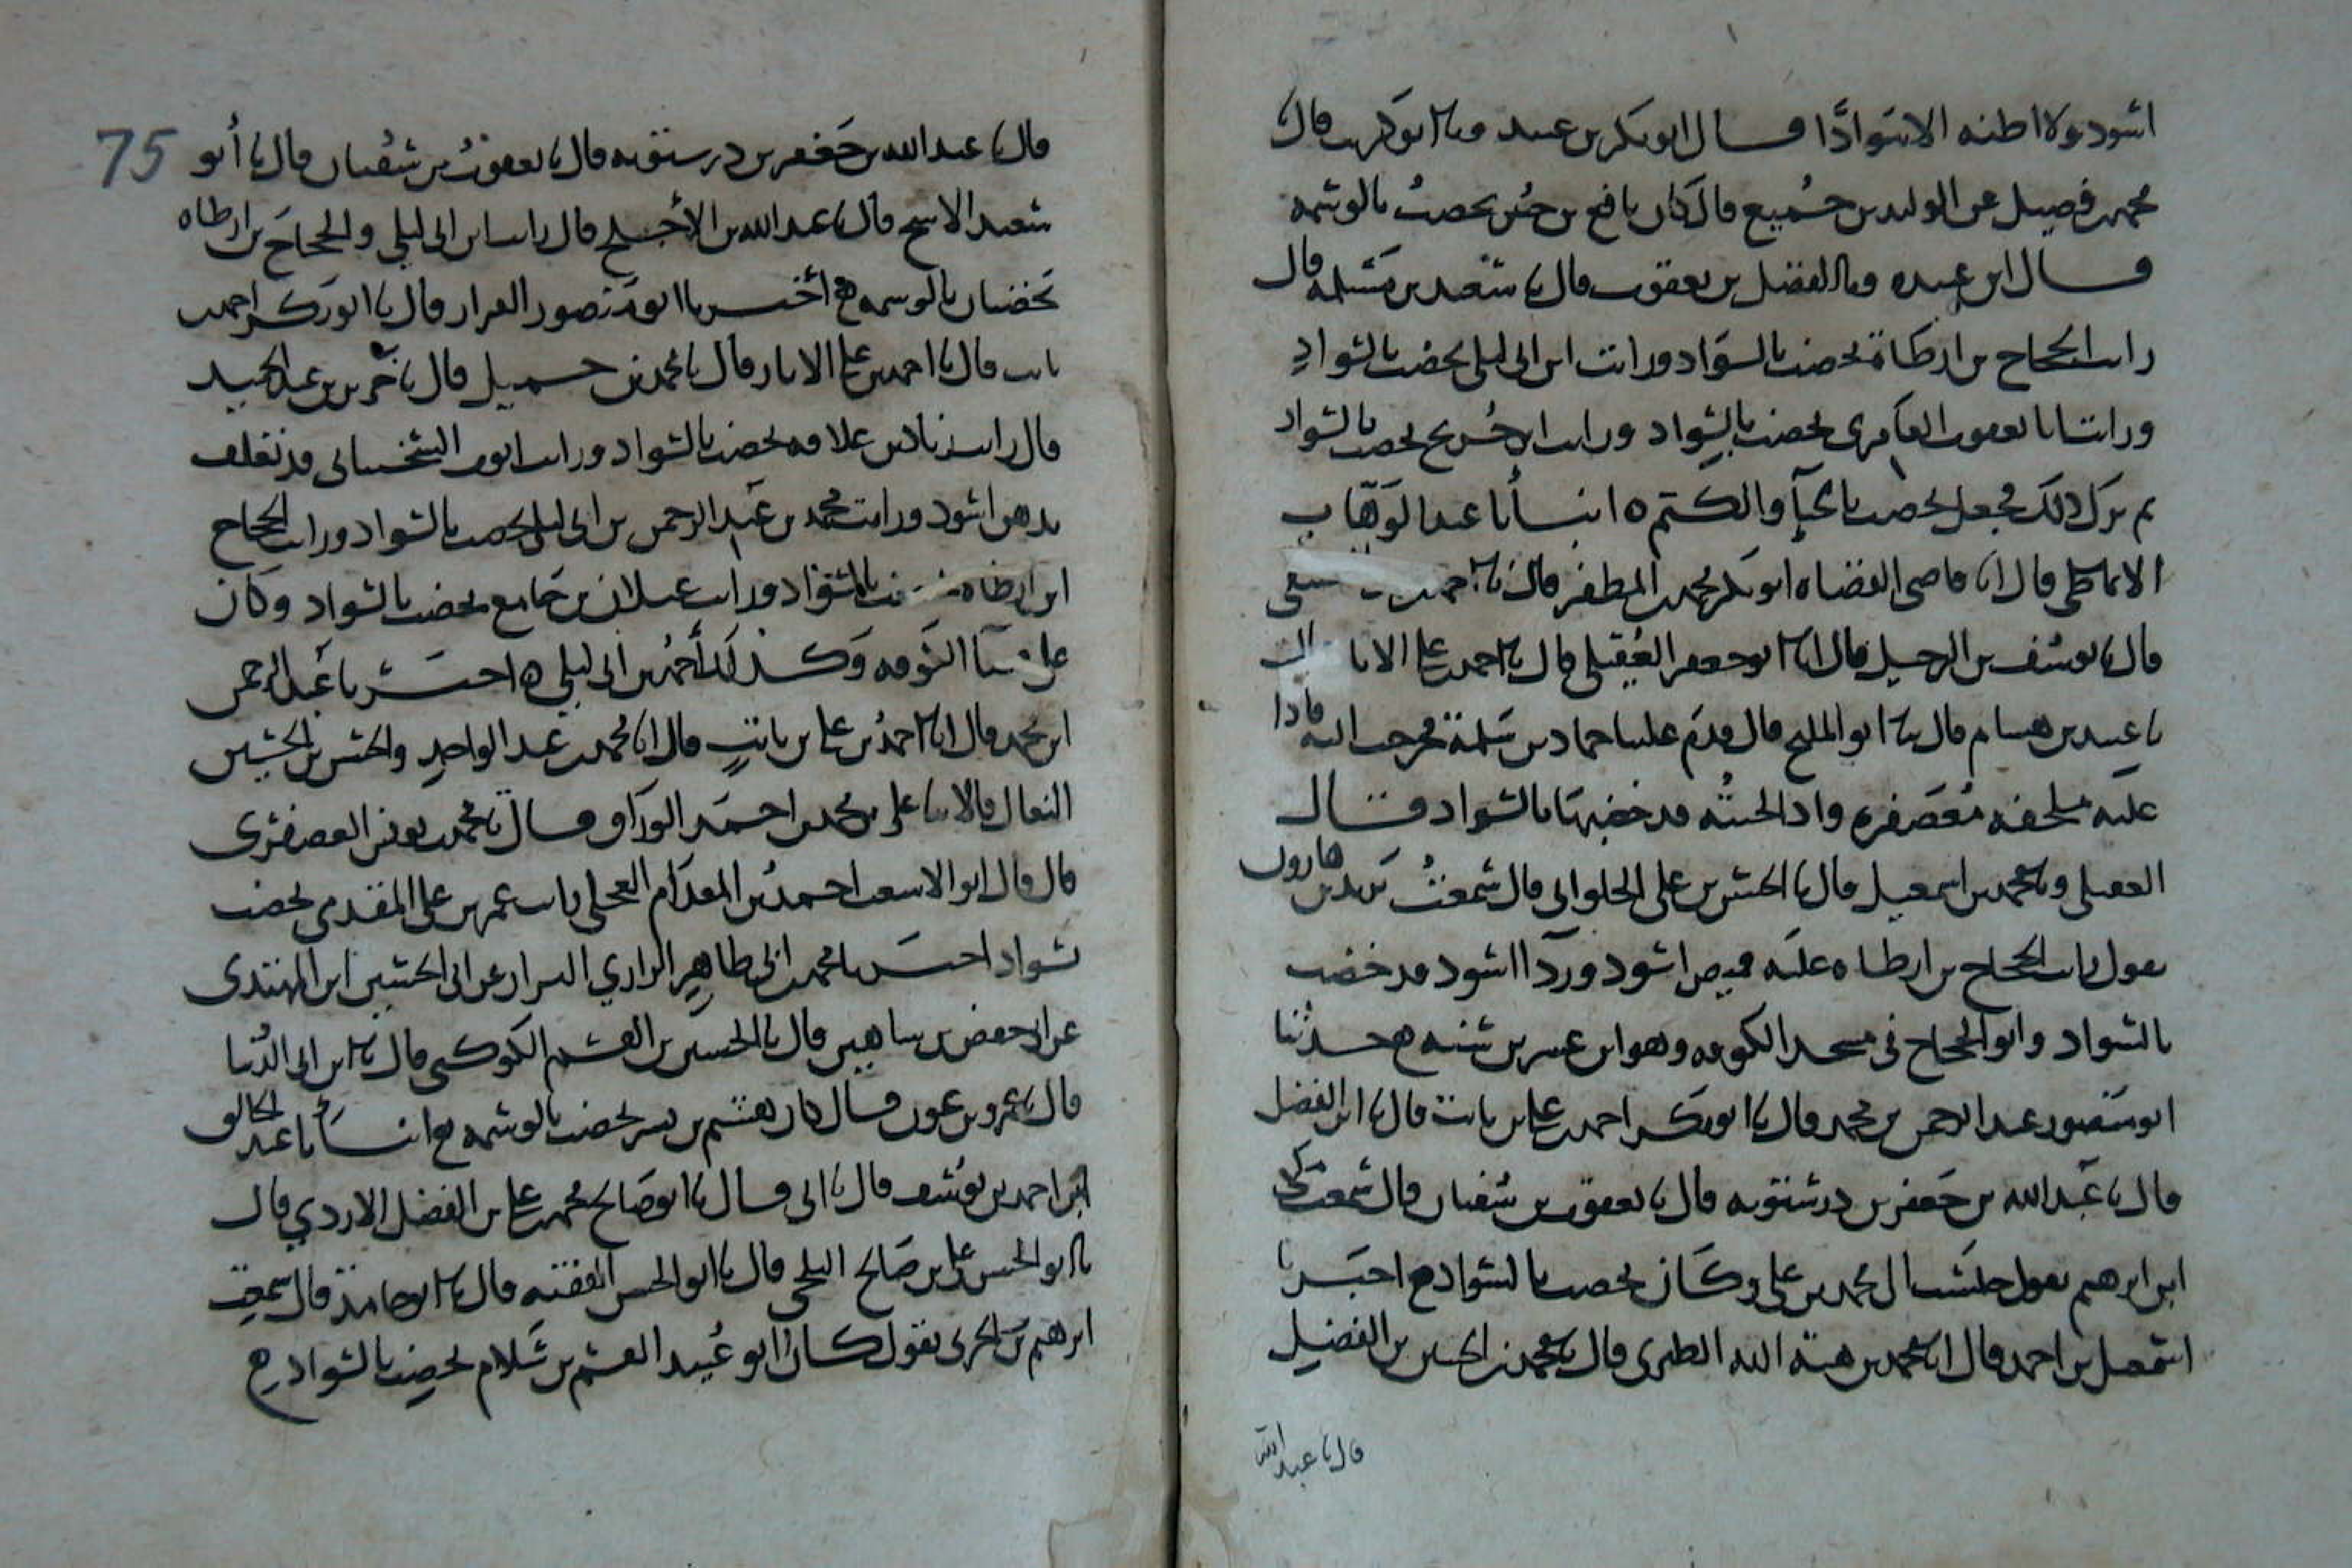 اسود ولا اظنه الا سوادا قال ابو بكر بن عبيد وثنا ابو كريب قال
محمد بن فضيل عن الوليد بن جميع قال كان نافع بن جبير يخضب بالوسمه
قال ابن عبيده وثنا الفضل بن يعقوب قال ثنا سعيد بن مسلمه قال
رايت الحجاج بن ارطاة يخضب بالسواد ورايت ابن ابي ليلى يخضب بالسواد
ورايت ابا يعقوب العامري يخضب بالسواد ورايت ابن جريج يخضب بالسواد
ثم ترك ذلك فجعل يخضب بالحنا والكتم ه انبانا عبد الوهاب
الانماطي قال انا قاضي القضاه ابو بكر محمد بن المظفر قال ثنا احمد بن
قال ثنا يوسف بن الرحيل قال ثنا ابو جعفر العقيلي قال ثنا احمد بن علي الابار
ثنا عبيد بن هشام قال ثنا ابو المليح قال قدم علينا حماد بن سلمة فخرجت اليه فاذا
عليه ملحفه معصفره واذا لحيته قد خضبها بالسواد قال
العقيلي وثنا محمد بن اسمعيل قال ثنا الحسن بن علي الحلواني قال سمعت يزيد بن هارون
يقول رايت الحجاج بن ارطاه عليه قميص اسود وردا اسود قد خضب
بالسواد وابو الحجاج في مسجد الكوفه وهو ابن عشرين سنه ح حدثنا
ابو منصور عبد الرحمن بن محمد قال ثنا ابو بكر احمد بن علي بن ثابت قال ثنا ابن الفضل
قال ثنا عبد الله بن جعفر بن درستويه قال ثنا يعقوب بن سفيان قال سمعت مكي
ابن ابرهيم يقول جلست الى محمد بن علي وكان يخضب بالسواد ح اخبرنا
اسمعيل بن احمد قال انا محمد بن هبة الله الطبري قال ثنا محمد بن الحسين بن الفضل
قال ثنا عبد الله
75
قال ثنا عبد الله بن جعفر بن درستويه قال ثنا يعقوب بن سفيان قال ثنا ابو
سعيد الاشج قال ثنا عبد الله بن الاجلح قال رايت ابن ابي ليلى والحجاج بن ارطاه
يخضبان بالوسمه ح اخبرنا ابو منصور القزاز قال ثنا ابو بكر احمد بن
ثابت قال ثنا احمد بن علي الابار قال ثنا محمد بن حميد قال ثنا جرير بن عبد الحميد
قال رايت زياد بن علاقه يخضب بالسواد ورايت ايوب السختياني قد تغلف
بدهن اسود ورايت محمد بن عبد الرحمن بن ابي ليلى يخضب بالسواد ورايت الحجاج
ابن ارطاه يخضب بالسواد ورايت غيلان بن جامع يخضب بالسواد وكان
على قضا الكوفه وكذلك محمد بن ابي ليلى ه اخبرنا عبد الرحمن
ابن محمد قال انا احمد بن علي بن ثابت قال انا محمد بن عبد الواحد والحسن بن الحسين
النعال قالا ثنا علي بن محمد بن احمد الوراق قال ثنا محمد بن يونس العصفري
قال قال ابو الاشعث احمد بن المقدام العجلي رايت عمر بن علي المقدمي يخضب
بسواد اخبرنا محمد بن ابي طاهر الرازي البزاز عن ابي الحسين ابن المهتدي
عن ابي حفص بن شاهين قال ثنا الحسين بن القسم الكوكبي قال ثنا ابن ابي الدنيا
قال ثنا عمرو بن عون قال كان هشيم بن بشير يخضب بالوسمه ح انبانا عبد الخالق
ابن احمد بن يوسف قال ثنا ابي قال ثنا ابو صالح محمد بن علي بن الفضل الازدي قال
ثنا ابو الحسن علي بن صالح البلخي قال ثنا ابو الحسن الفقيه قال ثنا ابو حامد قال سمعت
ابرهيم بن الحربي يقول كان ابو عبيد القسم بن سلام يخضب بالسواد ح